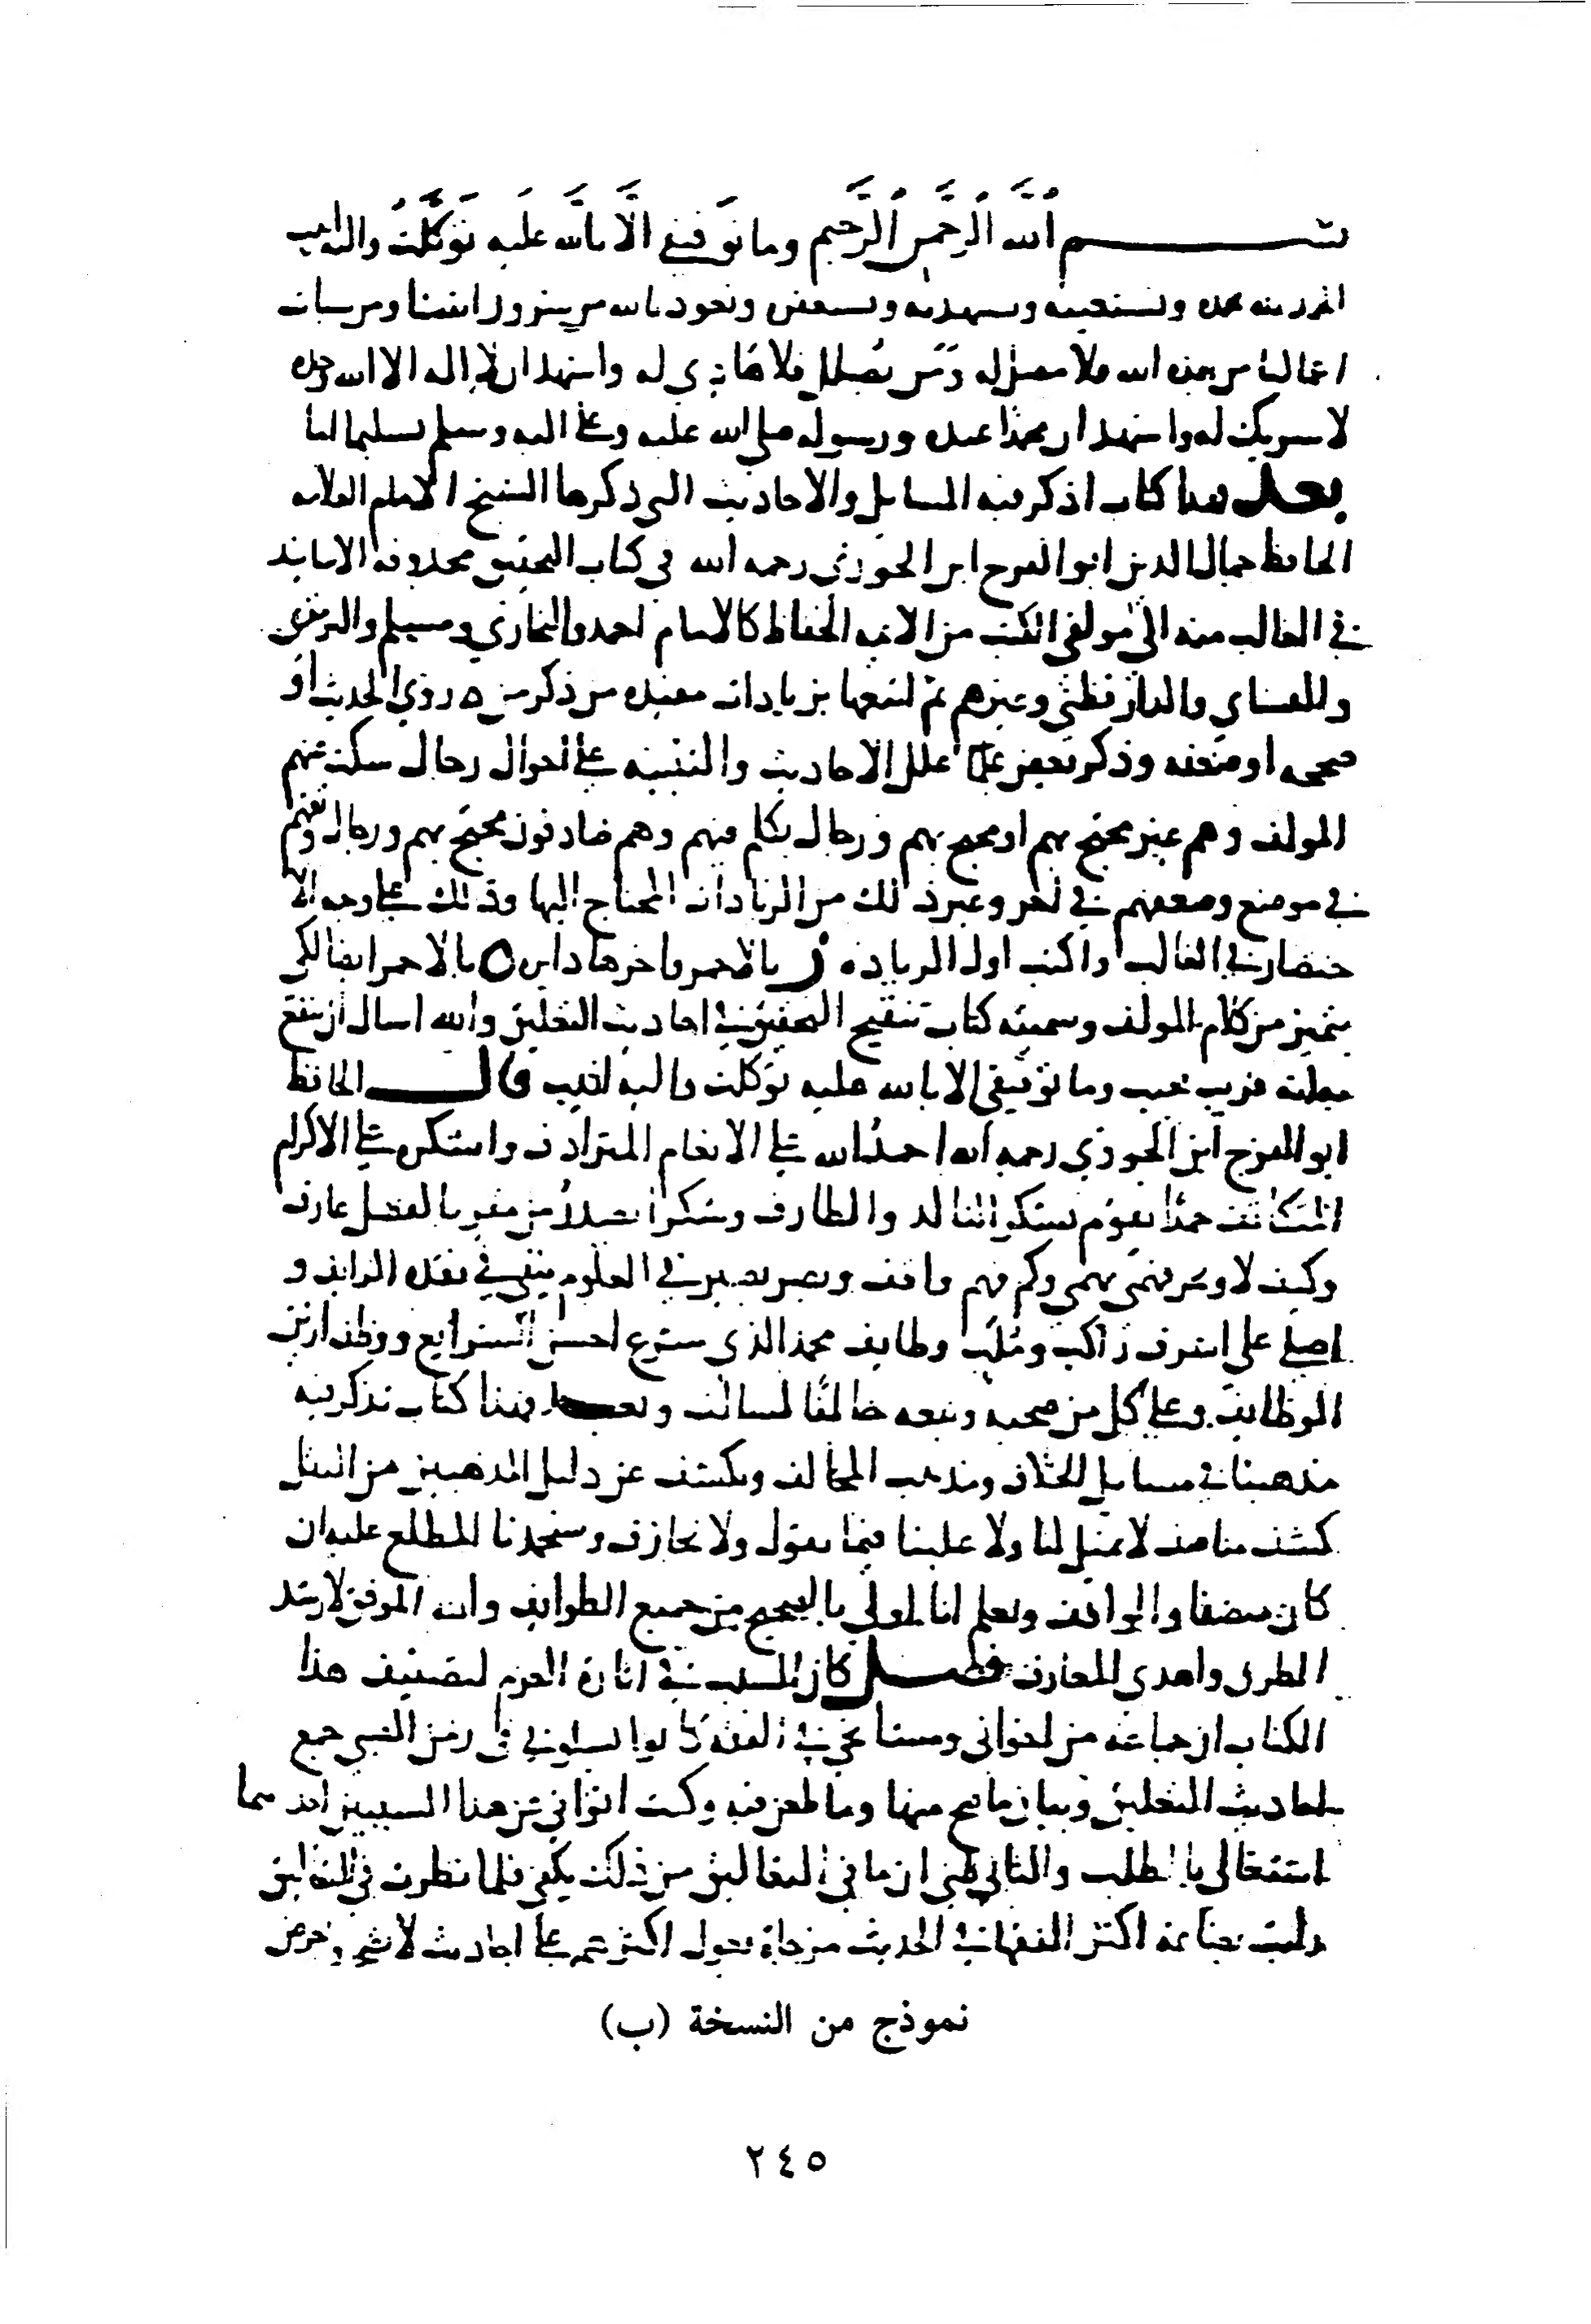 بسم الله الرحمن الرحيم وما توفيقي الا بالله عليه توكلت واليه انيب
الحمد لله نحمده ونستعينه ونستهديه ونستغفره ونعوذ بالله من شرور انفسنا ومن سيات
اعمالنا من يهده الله فلا مضل له ومن يضلل فلا هادي له واشهد ان لا اله الا الله وحده
لا شريك له واشهد ان محمدا عبده ورسوله صلى الله عليه وعلى اله وسلم تسليما اما
بعد فهذا كتاب اذكر فيه المسايل والاحاديث التي ذكرها الشيخ الامام العلامه
الحافظ جمال الدين ابو الفرج ابن الجوزي رحمه الله في كتاب التحقيق محذوفه الاسانيد
في الغالب منه الى مولفي الكتب من الايمه الحفاظ كالامام احمد والبخاري ومسلم والترمذي
والنساي والدارقطني وغيرهم ثم اتبعها بزيادات مفيده من ذكر من روي الحديث او
صححه او ضعفه وذكر بعض علل الاحاديث والتنبيه على احوال رجال سكت عنهم
المولف وهم غير محتج بهم او محتج بهم ورجال تكلم فيهم وهم صادقون محتج بهم ورجال وثقهم
في موضع وضعفهم في اخر وغير ذلك من الزيادات المحتاج اليها وذلك على وجه الا
ختصار في الغالب واكتب اول الزياده ز بالاحمر واخرها داير ه بالاحمر ايضا لكي
يتميز من كلام المولف وسميته كتاب تنقيح التحقيق في احاديث التعليق والله اسال ان ينفع
قريب مجيب وما توفيقي الا بالله عليه توكلت واليه انيب قال الحافظ
ابو الفرج ابن الجوزي رحمه الله احمد الله على الانعام المترادف واشكره على الاكرام
المتكاثف حمدا يقوم بشكر التالد والطارف وشكرا يصدر من مقر بالفضل عارف
وكيف لا وغيره همى بهمي وكم فهم واقف وبصر بصير في العلوم ينتقي في نقده الزايف و
اصلي على اشرف راكب وملب وطايف محمد الذي شرع احسن الشرايع ووظف ازين
الوظايف وعلى كل من صحبه وتبعه خالفا لسالف وبعد فهذا كتاب نذكر فيه
مذهبنا في مسايل الخلاف ومذهب المخالف ونكشف عن دليل المذهبين من النقل
كشف مناصف لا نميل لنا ولا علينا فيما نقول ولا نجازف وسيحمدنا المطلع عليه ان
كان منصفا والواقف ونعلم انا اولى بالصحيح من جميع الطوايف والله الموفق لارشد
الطرق واهدى المعارف فصل كان السبب في اثارة العزم لتصنيف هذا
الكتاب ان جماعة من اخواني ومشايخي في الفقه كانوا يسلوني في زمن الصبي جمع
احاديث التعليق وبيان ما صح منها وما طعن فيه وكنت اتوانى عن هذا لسببين احدهما
اشتغالي بالطلب والثاني ظني ان ما في التعاليق من ذلك يكفي فلما نظرت في التعاليق
رايت بضاعة اكثر الفقها في الحديث مزجاة يعول اكثرهم على احاديث لا تصح ويعرض
نموذج من النسخة (ب)
٢٤٥